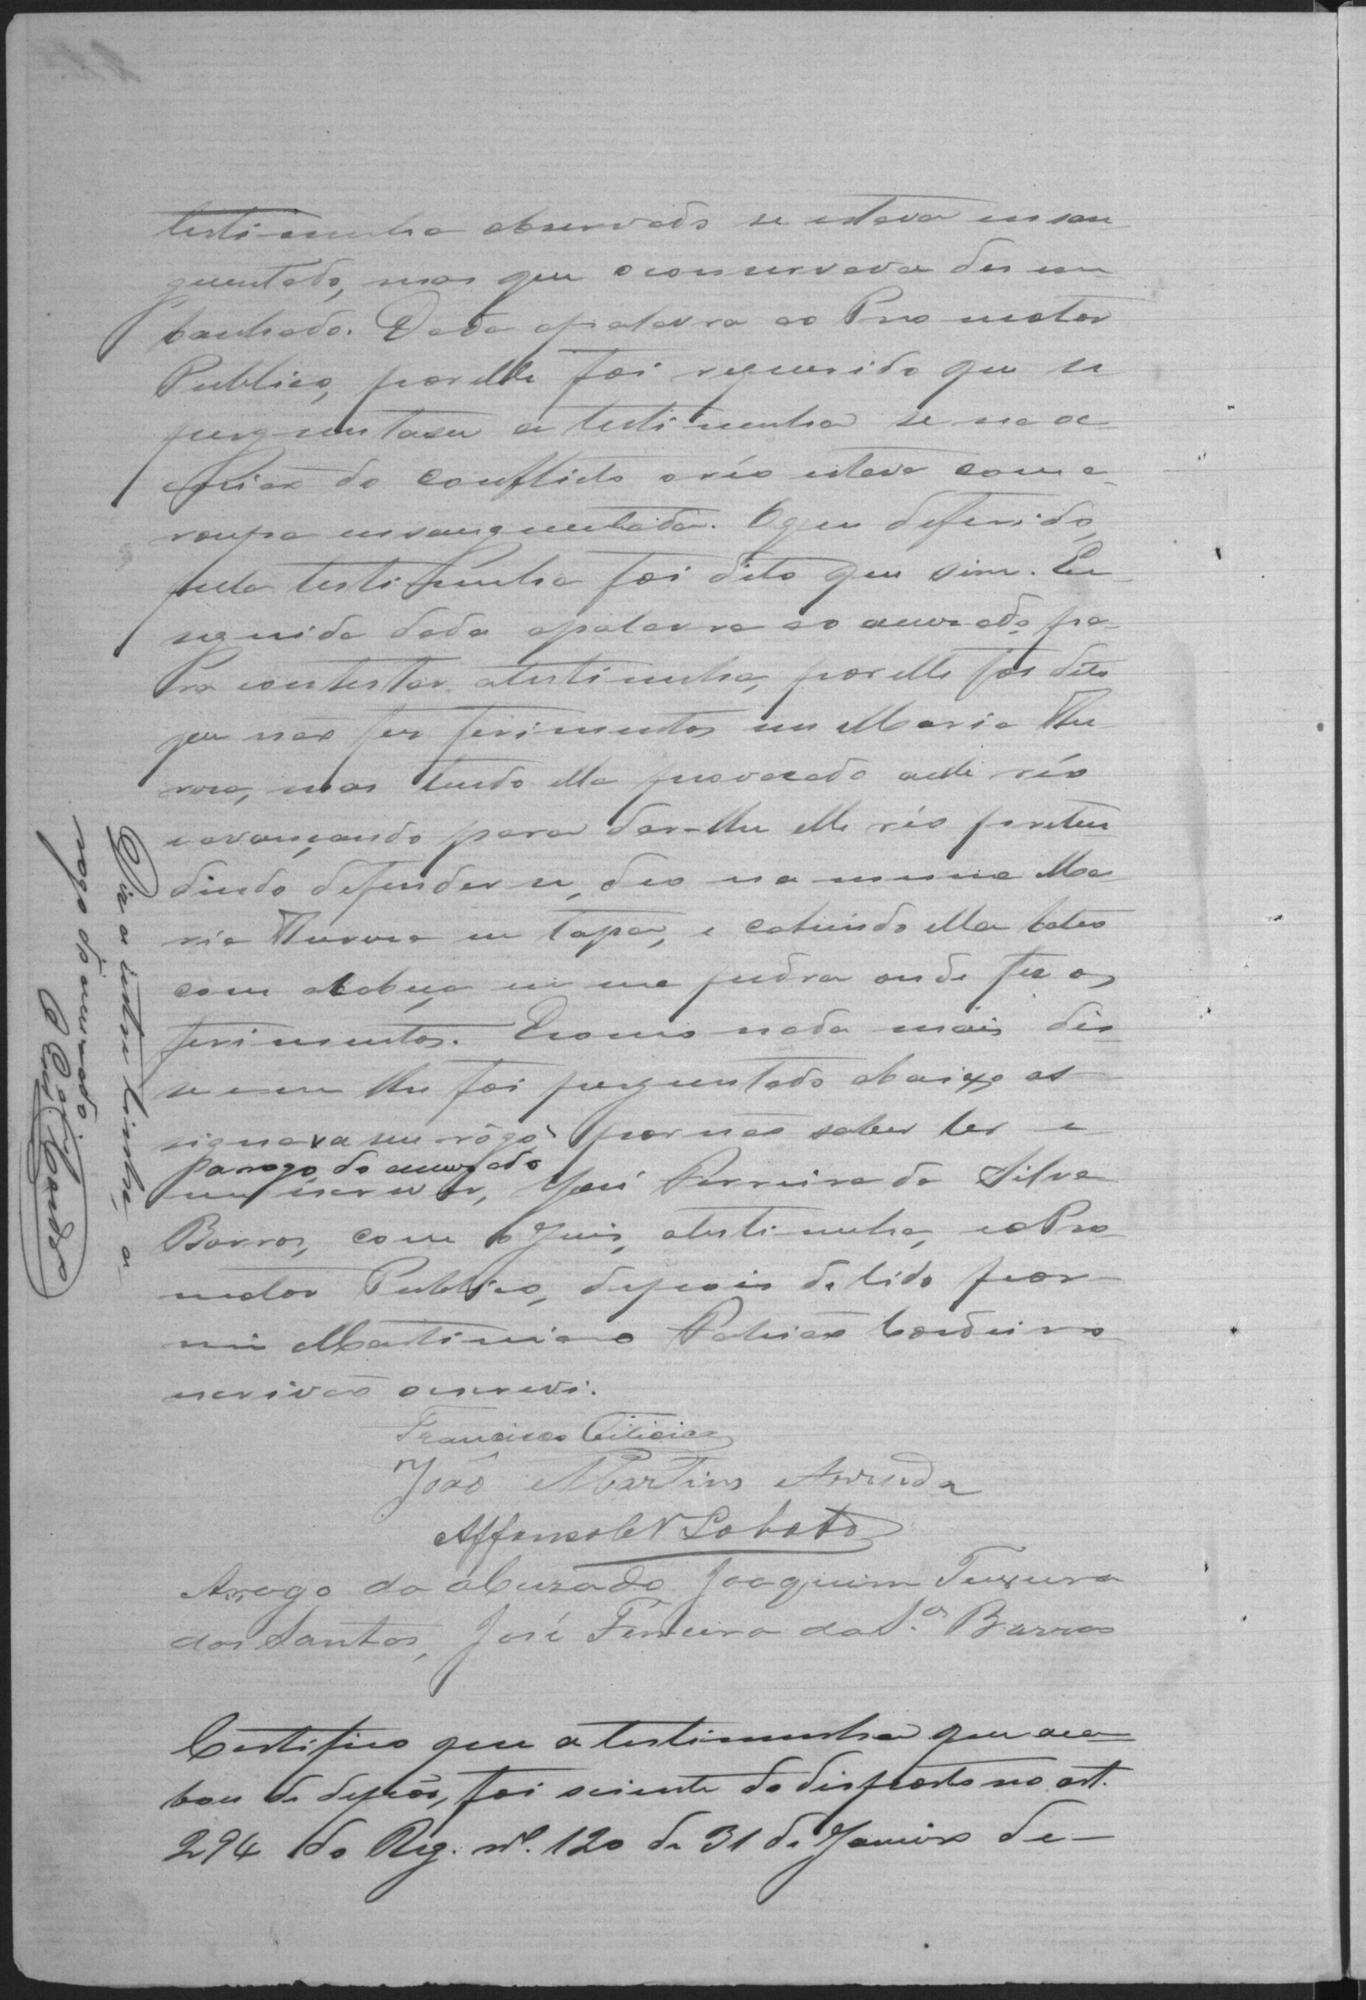 testimunha observado se estava ensan
guentado, mas que o conservava desem
bainhado. Dada apalavra ao Promotor
Publico, por elle foi requerido que se
perguntasse a testimunha se na oc
casião do conflicto o réo estava com a
roupa ensanguentada. O que deferido,
pela testimunha foi dito que sim. Em
seguida dada apalavra ao accusado pa-
ra contestar atestimunha, por elle foi dito
que não fez ferimentos em Maria Au
rora, mas tendo ella provocado a elle réo
e avançando para dar-lhe elle réo preten
dendo defender-se, deo na mesma Ma
ria Aurora um tapa, e cahindo ella bateo
com acabeça em uma pedra onde fez os
ferimentos. Ecomo nada mais dis
se nem lhe foi perguntado abaixo as
signa va seu rôgo por não saber ler e
parogo do accusado
nem escrever, José Ferreira da Silva
Barros, com o Juis, atestimunha, e o Pro
motor Publico, depois de lido por
mim Martiniano Cordeiro
escrivão o escrevi.
Francisco
João Martins Arruda
Affonso Lobato
Arrogo do acuzado Joaquim Teixeira
dos Santos, José Ferreira da Sa. Barros
Certifico que a testimunha que aca
bou de depôr, foi sciente do disposto no art.
294 do Reg. nº. 120 de 31 de Janeiro de-
Diz a entre linha, a
rogo do accusado.
O Escrivão
Cordeiro